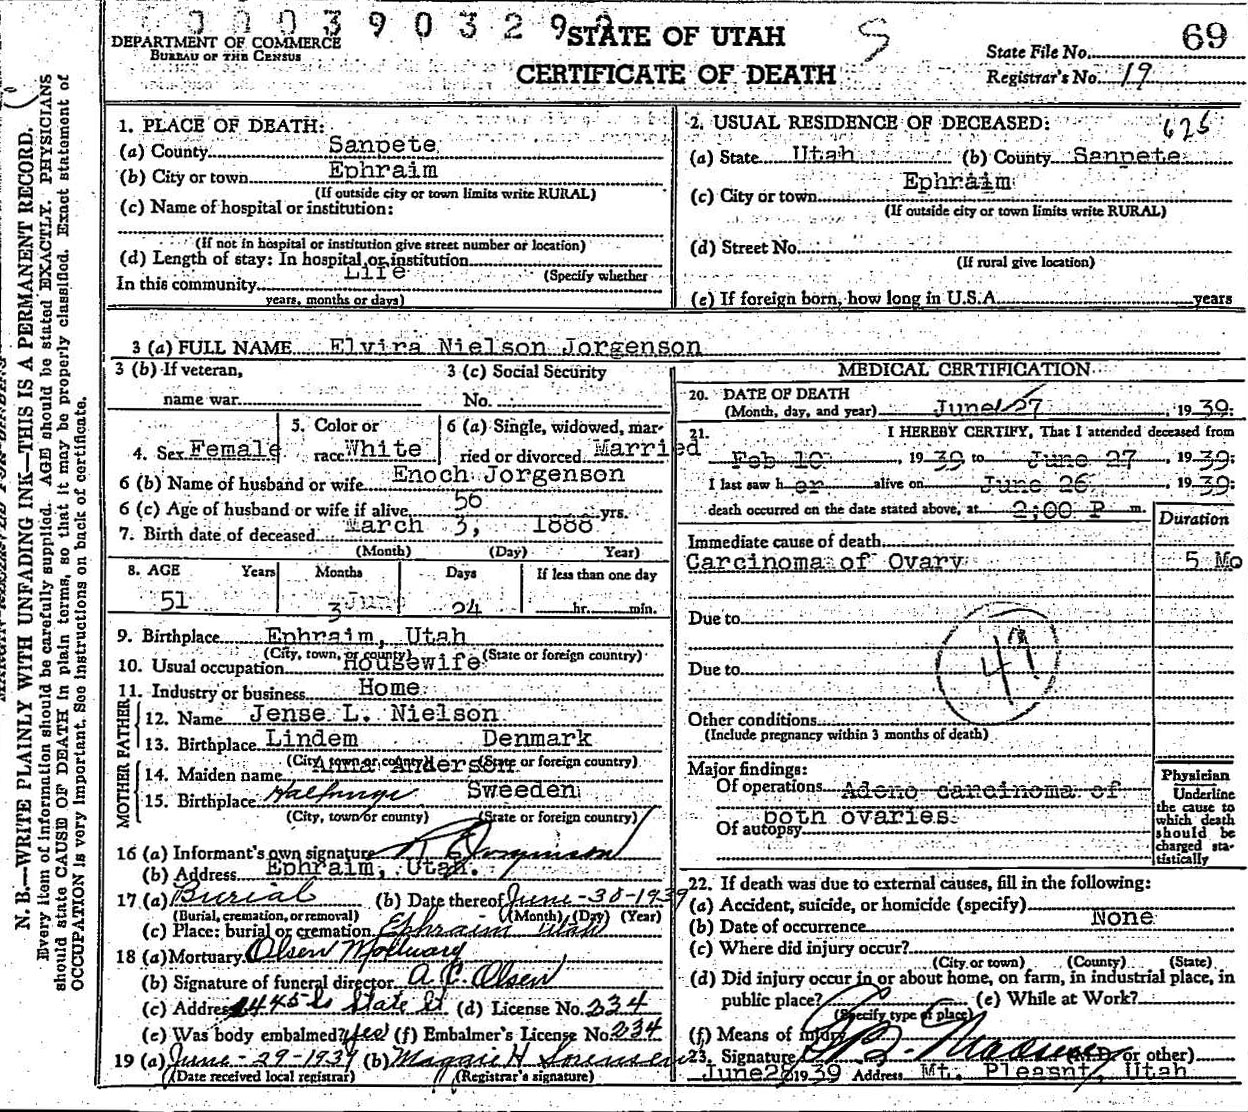 0003903292
DEPARTMENT OF COMMERCE
BUREAU OF THE CENSUS
STATE OF UTAH
CERTIFICATE OF DEATH
S
69
State File No.
Registrar's No. 19
N. B.—WRITE PLAINLY WITH UNFADING INK—THIS IS A PERMANENT RECORD.
Every item of information should be carefully supplied. AGE should be stated EXACTLY. PHYSICIANS
should state CAUSE OF DEATH in plain terms, so that it may be properly classified. Exact statement of
OCCUPATION is very important. See instructions on back of certificate.
1. PLACE OF DEATH:
(a) County Sanpete
(b) City or town Ephraim
(If outside city or town limits write RURAL)
(c) Name of hospital or institution:
(If not in hospital or institution give street number or location)
(d) Length of stay: In hospital or institution
(Specify whether
In this community Life
years, months or days)
2. USUAL RESIDENCE OF DECEASED: 625
(a) State Utah (b) County Sanpete
(c) City or town Ephraim
(If outside city or town limits write RURAL)
(d) Street No.
(If rural give location)
(e) If foreign born, how long in U.S.A. years
3 (a) FULL NAME Elvira Nielson Jorgenson
3 (b) If veteran,
name war
3 (c) Social Security
No.
4. Sex Female
5. Color or
race White
6 (a) Single, widowed, mar-
ried or divorced Married
6 (b) Name of husband or wife Enoch Jorgenson
6 (c) Age of husband or wife if alive 56 yrs.
7. Birth date of deceased March 3, 1888
(Month) (Day) Year)
8. AGE Years Months Days If less than one day
51 3 June 24 hr. min.
9. Birthplace Ephraim, Utah
(City, town, or county) (State or foreign country)
10. Usual occupation Housewife
11. Industry or business Home
FATHER
12. Name Jense L. Nielson
13. Birthplace Lindem Denmark
(City, town or county) (State or foreign country)
MOTHER
14. Maiden name Anna Anderson
15. Birthplace Sweeden
(City, town or county) (State or foreign country)
16 (a) Informant's own signature
(b) Address Ephraim, Utah.
17 (a) Burial (b) Date thereof June-30-1939
(Burial, cremation, or removal) (Month) (Day) (Year)
(c) Place: burial or cremation Ephraim Utah
18 (a) Mortuary Olsen Mortuary
(b) Signature of funeral director A. C. Olsen
(c) Address 445 So State St (d) License No. 234
(e) Was body embalmed? yes (f) Embalmer's License No. 234
19 (a) June-29-1939 (b) Maggie H Sorensen
(Date received local registrar) (Registrar's signature)
MEDICAL CERTIFICATION
20. DATE OF DEATH
(Month, day, and year) June 27, 1939.
21. I HEREBY CERTIFY, That I attended deceased from
Feb 10, 1939 to June 27, 1939:
I last saw h er alive on June 26, 1939:
death occurred on the date stated above, at 2:00 P m.
Duration
Immediate cause of death
Carcinoma of Ovary 5 Mo
Due to
Due to
49
Other conditions
(Include pregnancy within 3 months of death)
Major findings:
Of operations Adeno carcinoma of
both ovaries.
Of autopsy
Physician
Underline
the cause to
which death
should be
charged sta-
tistically
22. If death was due to external causes, fill in the following:
(a) Accident, suicide, or homicide (specify)
(b) Date of occurrence None
(c) Where did injury occur?
(City or town) (County) (State)
(d) Did injury occur in or about home, on farm, in industrial place, in
public place? (e) While at Work?
(Specify type of place)
(f) Means of injury
23. Signature (M.D. or other)
June 28 1939 Address Mt. Pleasnt, Utah